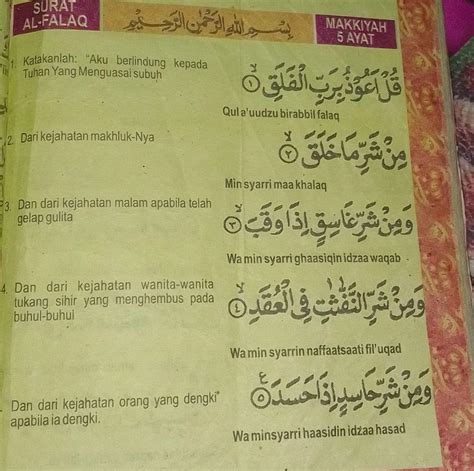 SURAT
AL-FALAQ
بِسْمِ اللهِ الرَّحْمٰنِ الرَّحِيْمِ
MAKKIYAH
5 AYAT
1. Katakanlah: "Aku berlindung kepada
Tuhan Yang Menguasai subuh
قُلْ اَعُوْذُ بِرَبِّ الْفَلَقِۙ ١
Qul a'uudzu birabbil falaq
2. Dari kejahatan makhluk-Nya
مِنْ شَرِّ مَا خَلَقَۙ ٢
Min syarri maa khalaq
3. Dan dari kejahatan malam apabila telah
gelap gulita
وَمِنْ شَرِّ غَاسِقٍ اِذَا وَقَبَۙ ٣
Wa min syarri ghaasiqin idzaa waqab
4. Dan dari kejahatan wanita-wanita
tukang sihir yang menghembus pada
buhul-buhul
وَمِنْ شَرِّ النَّفّٰثٰتِ فِى الْعُقَدِۙ ٤
Wa min syarrin naffaatsaati fil'uqad
Dan dari kejahatan orang yang dengki
apabila ia dengki.
وَمِنْ شَرِّ حَاسِدٍ اِذَا حَسَدَ ࣖ ٥
Wa minsyarri haasidin idzaa hasad